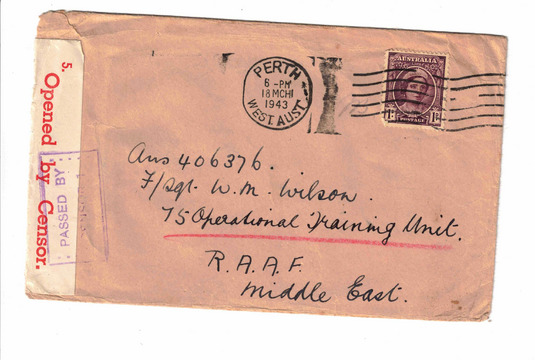 5. Opened by Censor.
PASSED BY
PERTH
6 - PM
18 MCH
1943
WEST. AUST
AUSTRALIA
1D
POSTAGE
1D
Aus 406376.
F/Sgt. W. M. Wilson.
75 Operational Training Unit.
R.A.A.F.
Middle East.